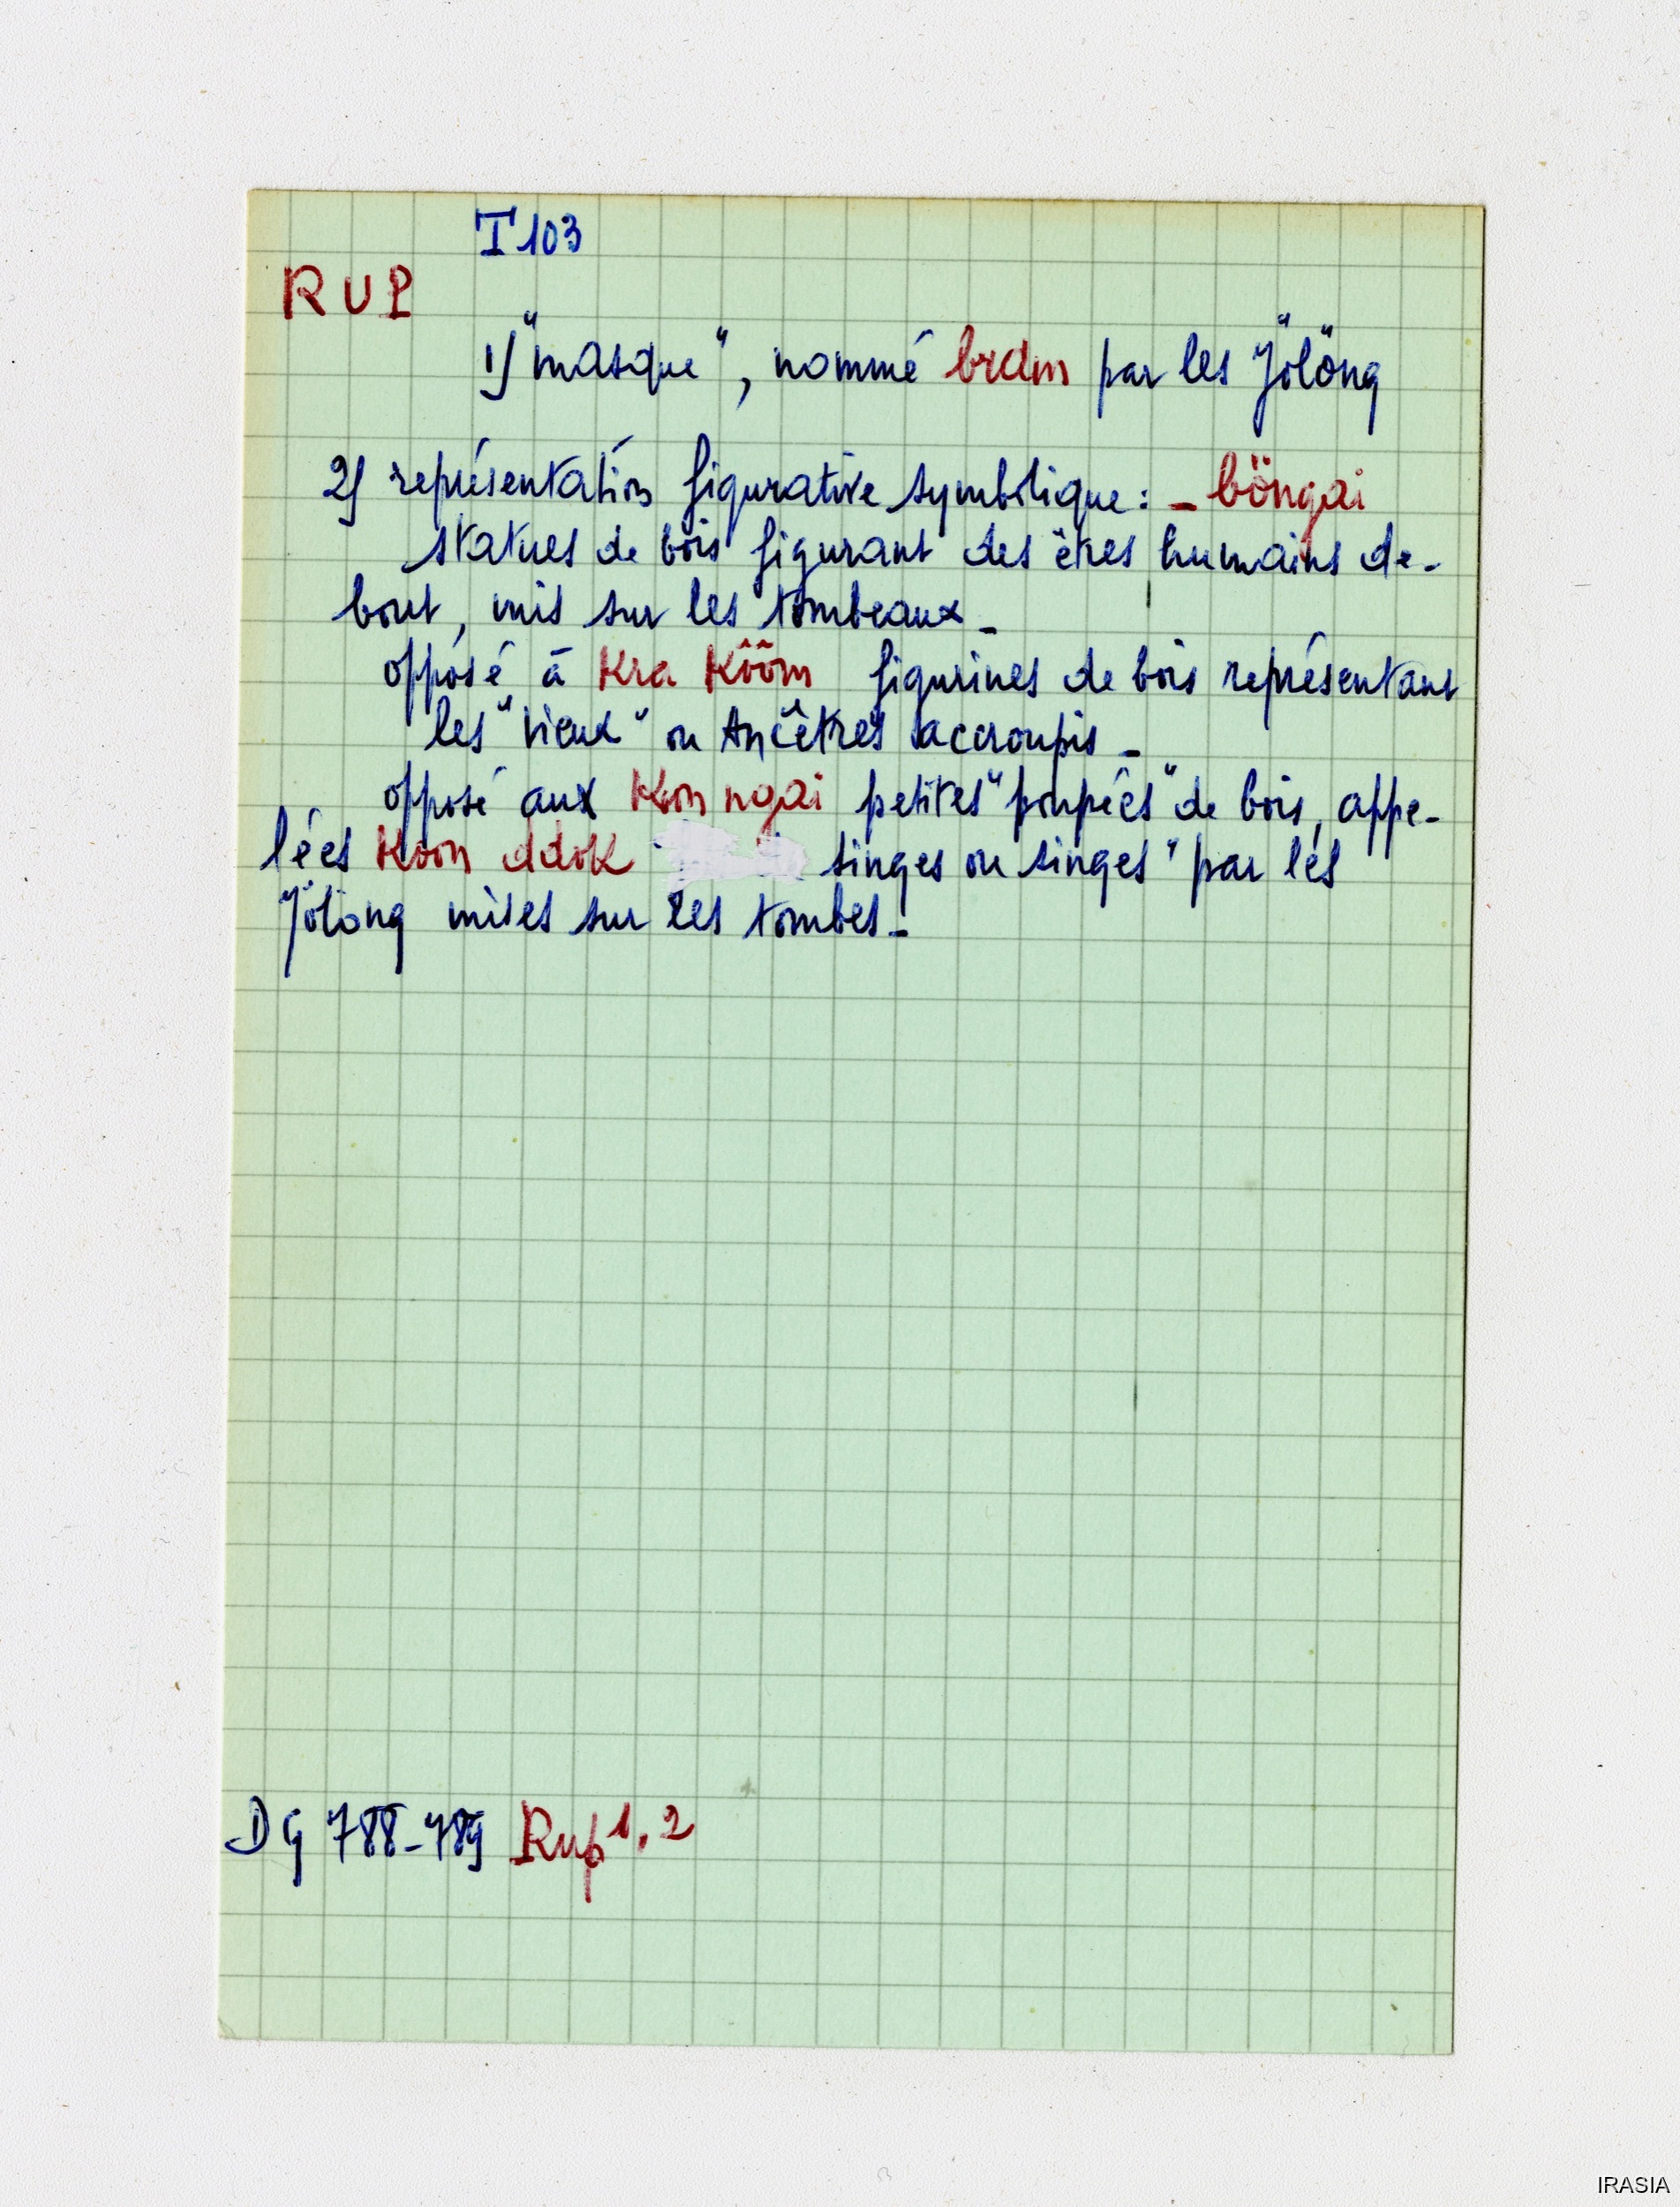 T 103
RUP
1) "masque", nommé brâm par les Jölöng
2) représentation figurative symbolique: - böngai
statues de bois figurant des êtres humains de-
bout, mis sur les tombeaux -
opposé à Kra Kôôm figurines de bois représentant
les "vieux" ou Ancêtres accroupis -
opposé aux Kon ngai petites "poupées" de bois, appe-
lées Koon ddok singes ou singes" par les
Jölöng mises sur les tombes -
DG 788-789 Rup 1, 2
IRASIA